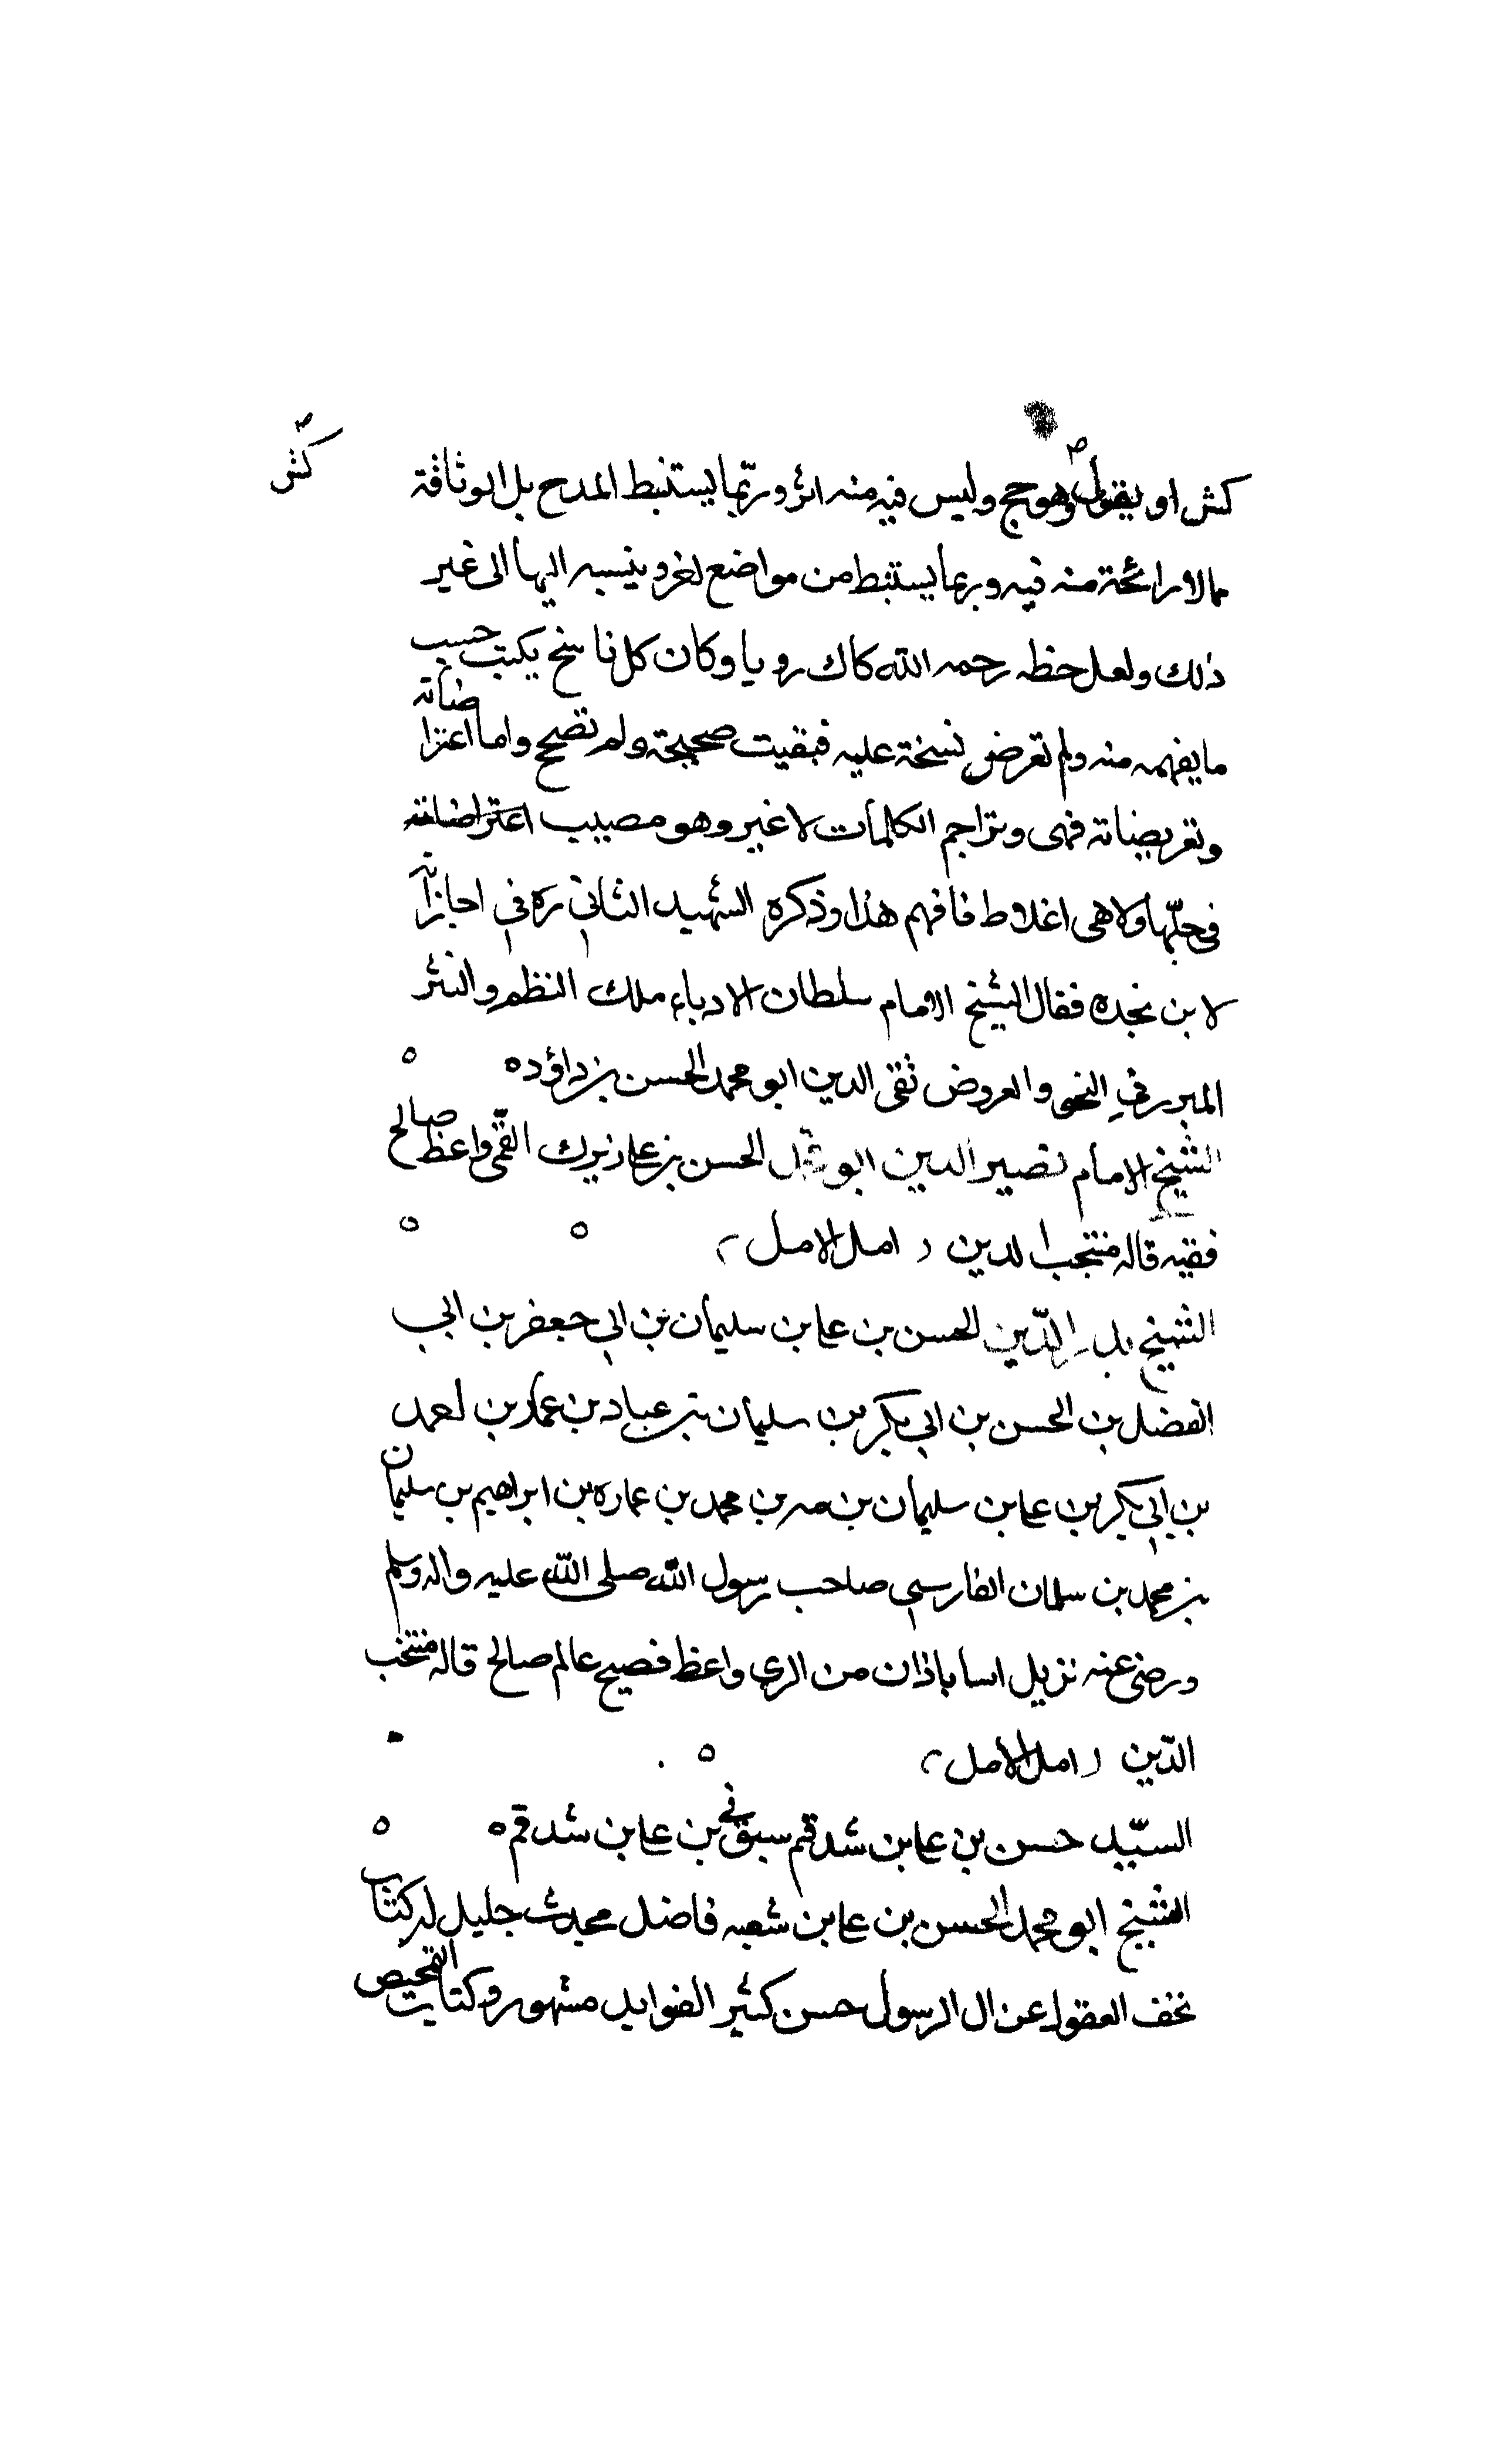 كش
كش او يقول وهو جج وليس فيه منه اثر وربّما يستنبط المدح بل الوثاقة
مما لا رائحة منه فيه وربما يستنبط من مواضع اخر وينسبه اليها الى غير
ذلك ولعل خطه رحمه الله كان رديا وكان كل ناسخ يكتب حسب
ما يفهمه منه ولم تعرض نسخة عليه فبقيت صحيحة ولم تصح واما اعتراضاته
وتعريضاته فهى وتراجم الكلمات لا غير وهو مصيب اعتراضاته
فى جلّها ولا هى اغلاط فافهم هذا وذكره الشهيد الثانى ره فى اجازته
لابن نجده فقال الشيخ الامام سلطان الادباء ملك النظم والنثر
المبرز فى النحو والعروض تقى الدين ابو محمد الحسن بن داؤد ه
الشيخ الامام نصير الدين ابو محمد الحسن بن على زيرك القمّى واعظ صالح
فقيه قاله منتجب الدين ( امل الامل )
الشيخ بدر الدّين الحسن بن على بن سليمان بن ابى جعفر بن ابى
الفضل بن الحسن بن ابى بكر بن سليمان بن عباد بن عمار بن احمد
بن ابى بكر بن على بن سليمان بن منه بن محمد بن عماره بن ابراهيم بن سليمان
بن محمد بن سلمان الفارسى صاحب رسول الله صلى الله عليه واله وسلم
ورضى عنه نزيل اساباذان من الرى واعظ فصيح عالم صالح قاله منتخب
الدّين ( امل الامل )
السيّد حسن بن على بن شدقم سبق فى بن على بن شدقم ه
الشيخ ابو محمد الحسن بن على بن شعبه فاضل محدث جليل له كتاب
تحف العقول عن ال الرسول حسن كثير الفوايد مشهور وكتاب التمحيص